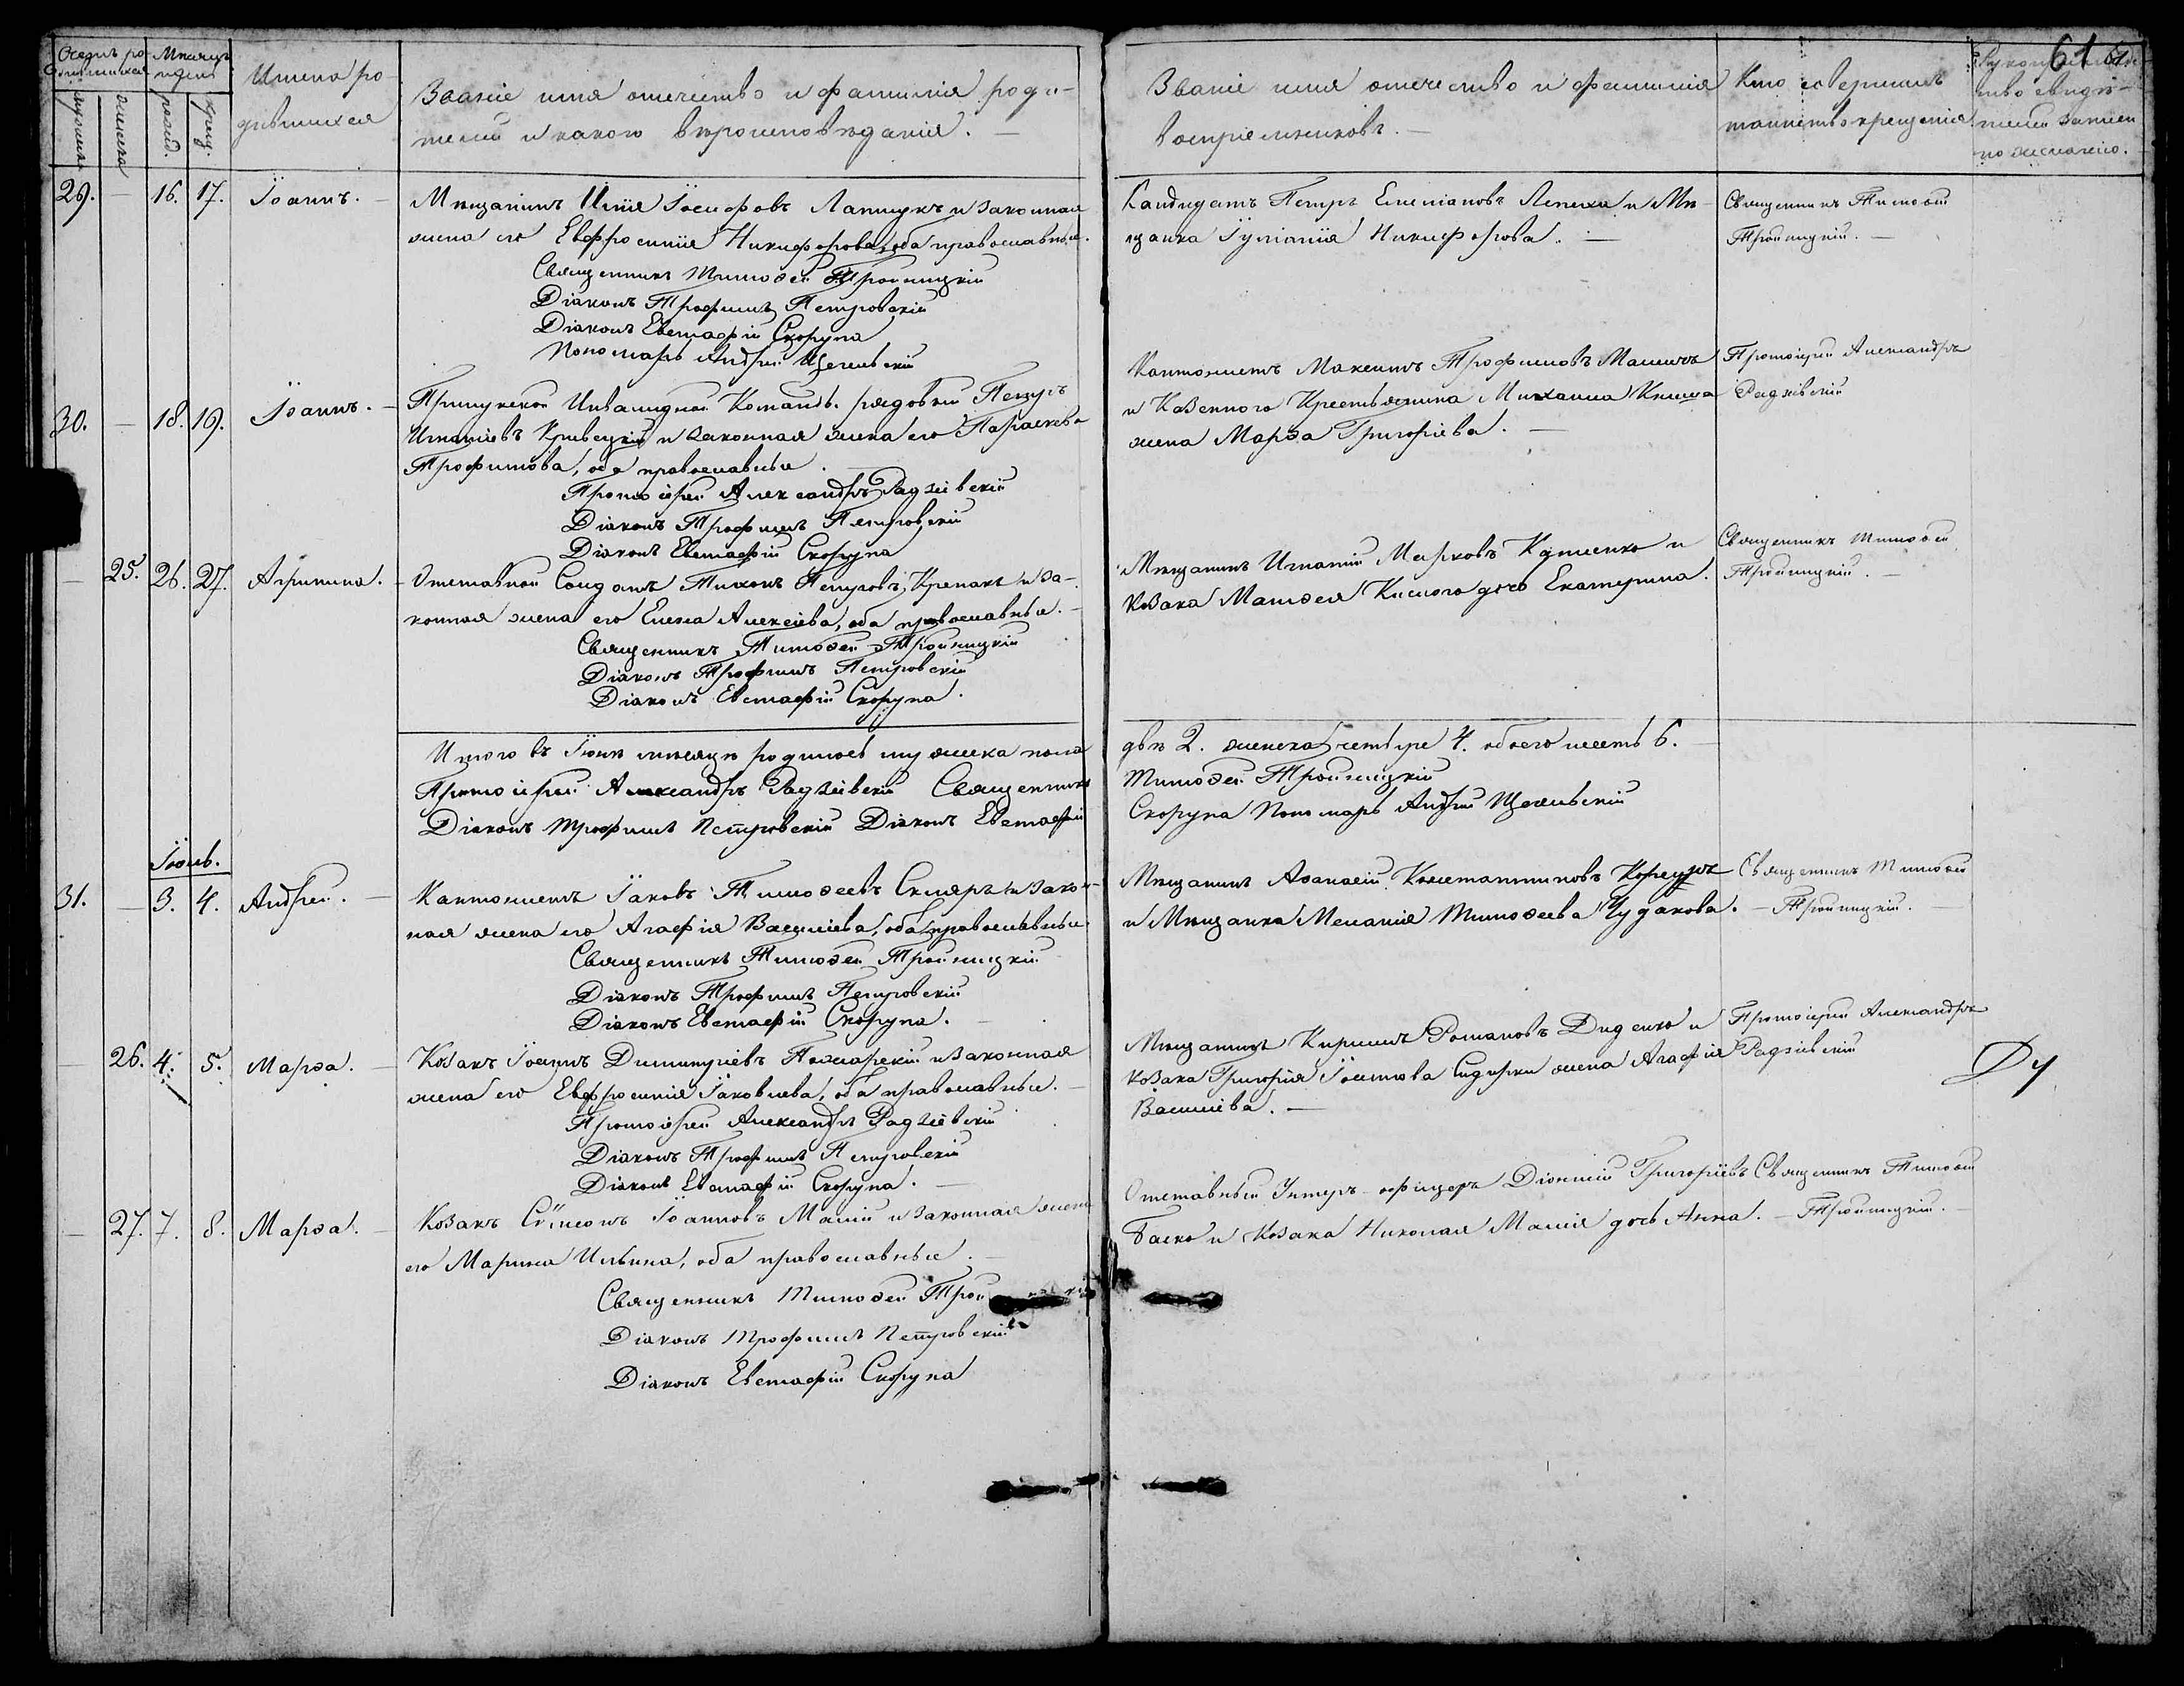 61
Счетъ ро-
дившихся
Мѣсяцъ
и день
мужеска
женска
рожд.
крещ.
Имена ро-
дившихся
Званіе имя отечество и фамилія роди-
телей и какого вѣроисповѣданія. —
Званіе имя отечество и фамилія
воспріемниковъ. —
Кто совершалъ
таинство крещенія
Рукоприкладс-
тво свидѣ-
телей записи
по желанію.
29. — 16. 17. Іоаннъ. —
Мѣщанинъ Илія Іосифовъ Лапшукъ и законная
жена его Евфросинія Никифорова, оба православные.
Священникъ Тимоѳей Тройницкій
Діаконъ Трофимъ Петровскій
Діаконъ Евстафій Скорупа
Пономарь Андрей Щегельскій
Кандидатъ Петръ Емеліановъ Лепеха и Мѣ-
щанка Іуліанія Никифорова. —
Священникъ Тимоѳей
Тройницкій. —
30. — 18. 19. Іоаннъ. —
Прилукской Инвалидной Команды рядовый Петръ
Игнатіевъ Кривецкій и законная жена его Параскева
Трофимова, оба православные.
Протоіерей Александръ Радзіевскій
Діаконъ Трофимъ Петровскій
Діаконъ Евстафій Скорупа
Кантонистъ Максимъ Трофимовъ Машинъ
и Казенного Крестьянина Михаила Книша
жена Марѳа Григоріева. —
Протоіерей Александръ
Радзіевскій
— 25. 26. 27. Агрипина. —
Отставной Солдатъ Тихонъ Петровъ Крепакъ и за-
конная жена его Елена Алексіева, оба православные. —
Священникъ Тимоѳей Тройницкій
Діаконъ Трофимъ Петровскій
Діаконъ Евстафій Скорупа.
Мѣщанинъ Игнатій Марковъ и
козака Матѳея Кислого дочь Екатерина.
Священникъ Тимоѳей
Тройницкій. —
Итого въ Іюнѣ мѣсяцѣ родилось мужеска пола
два 2. женска четыре 4. обоего шесть 6. —
Протоіерей Александръ Радзіевскій Священникъ
Тимоѳей Тройницкій
Діаконъ Трофимъ Петровскій Діаконъ Евстафій
Скорупа Пономарь Андрей Щегельскій
Іюль.
31. — 3. 4. Андрей. —
Кантонистъ Іаковъ Тимоѳеевъ Скляръ и закон-
ная жена его Агафія Василіева, оба православные.
Священникъ Тимоѳей Тройницкій
Діаконъ Трофимъ Петровскій
Діаконъ Евстафій Скорупа. —
Мѣщанинъ Аѳанасій Константиновъ
и Мѣщанка Меланія Тимоѳеева Чудакова. —
Священникъ Тимоѳей
Тройницкій. —
— 26. 4. 5. Марѳа. —
Козакъ Іоаннъ Димитріевъ Пожарскій и законная
жена его Евфросинія Іаковлева, оба православные. —
Протоіерей Александръ Радзіевскій
Діаконъ Трофимъ Петровскій
Діаконъ Евстафій Скорупа. —
Мѣщанинъ Кириллъ Романовъ Диденко и
козака Григорія жена Агафія
Василіева. —
Протоіерей Александръ
Радзіевскій
— 27. 7. 8. Марѳа. —
Козакъ Сѵмеонъ Іоанновъ Малій и законная жена
его Марина Ильина, оба православные. —
Священникъ Тимоѳей Тройницкій
Діаконъ Трофимъ Петровскій
Діаконъ Евстафій Скорупа
Отставный Унтеръ-офицеръ Діонисій Григоріевъ
Баско и козака Николая Малія дочь Анна. —
Священникъ Тимоѳей
Тройницкій. —